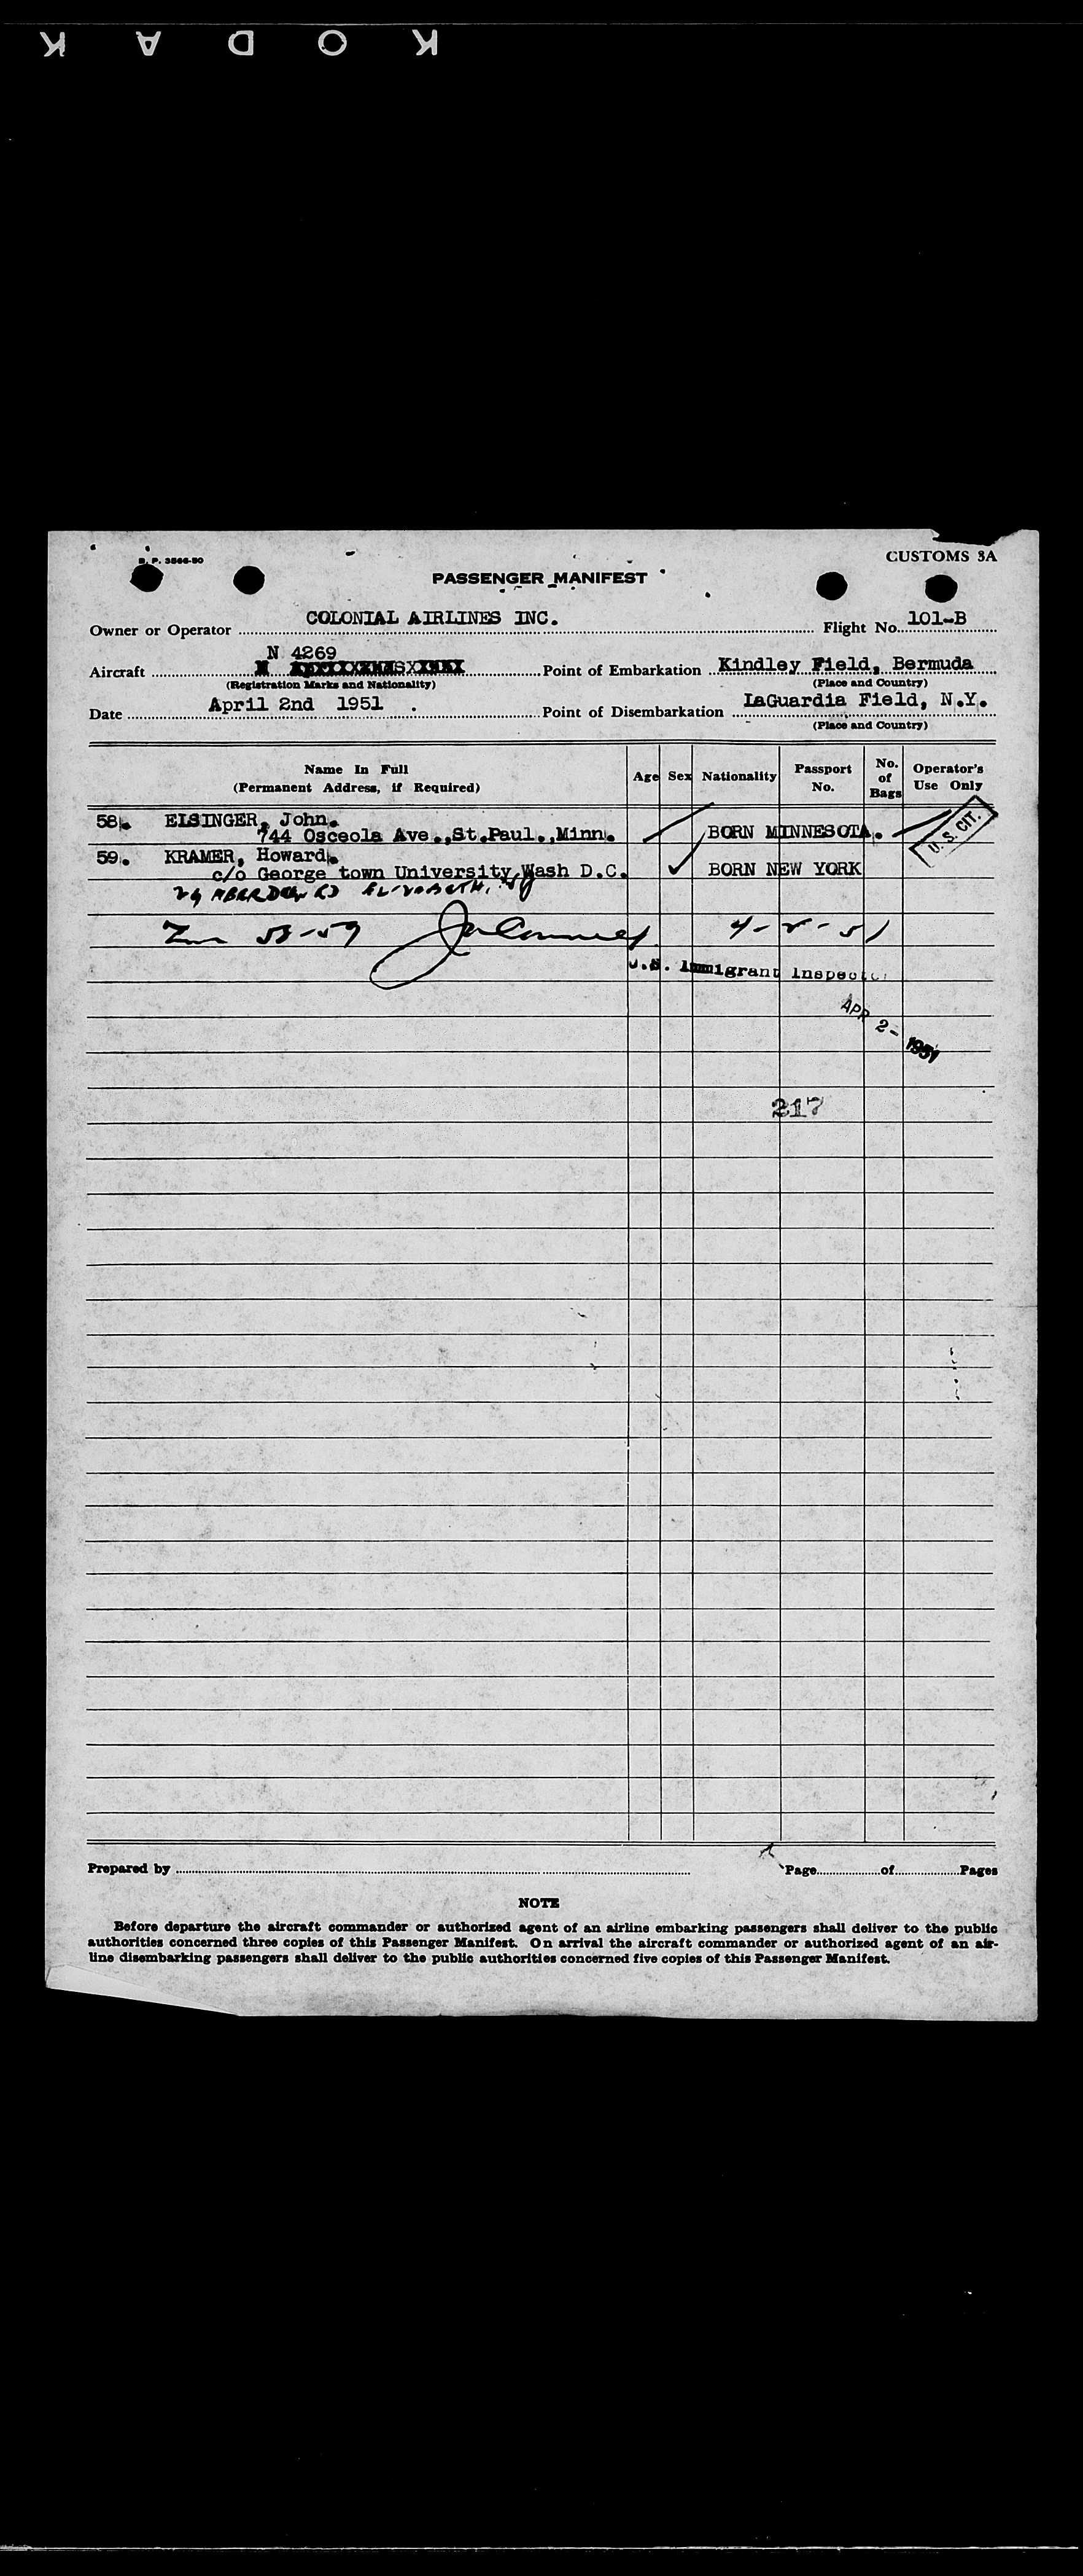 KODAK
CUSTOMS 3A
PASSENGER MANIFEST
Owner or Operator COLONIAL AIRLINES INC. Flight No. 101-B
N 4269
Aircraft Point of Embarkation Kindley Field, Bermuda
(Registration Marks and Nationality) (Place and Country)
Date April 2nd 1951 . Point of Disembarkation LaGuardia Field, N.Y.
(Place and Country)
Name In Full
(Permanent Address, if Required)
Age Sex Nationality Passport No. No. of Bags Operator's Use Only
58. EISINGER, John.
744 Osceola Ave.,St.Paul.,Minn. BORN MINNESOTA. U.S. CIT.
59. KRAMER, Howard.
c/o George town University,Wash D.C. BORN NEW YORK
29 ABERDEEN RD ELIZABETH. NJ
58-59 4-2-51
U.S. Immigrant Inspector
APR 2- 1951
217
Prepared by Page of Pages
NOTE
Before departure the aircraft commander or authorized agent of an airline embarking passengers shall deliver to the public
authorities concerned three copies of this Passenger Manifest. On arrival the aircraft commander or authorized agent of an air-
line disembarking passengers shall deliver to the public authorities concerned five copies of this Passenger Manifest.